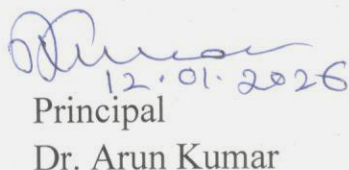 12.01.2026
Principal
Dr. Arun Kumar